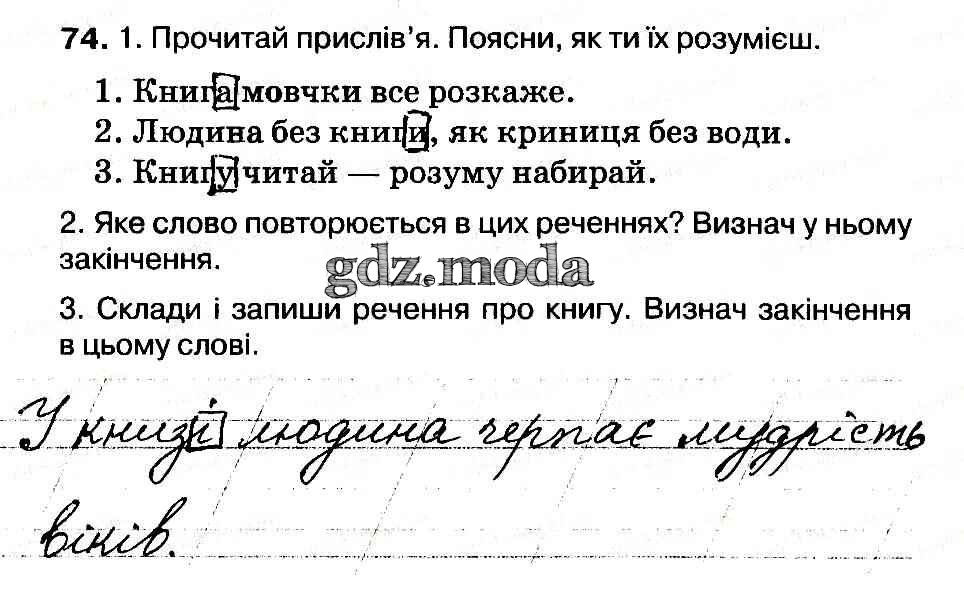 74. 1. Прочитай прислів'я. Поясни, як ти їх розумієш.
1. Книга мовчки все розкаже.
2. Людина без книги, як криниця без води.
3. Книгу читай — розуму набирай.
2. Яке слово повторюється в цих реченнях? Визнач у ньому
закінчення.
gdz.moda
3. Склади і запиши речення про книгу. Визнач закінчення
в цьому слові.
У книзі людина черпає мудрість
віків.